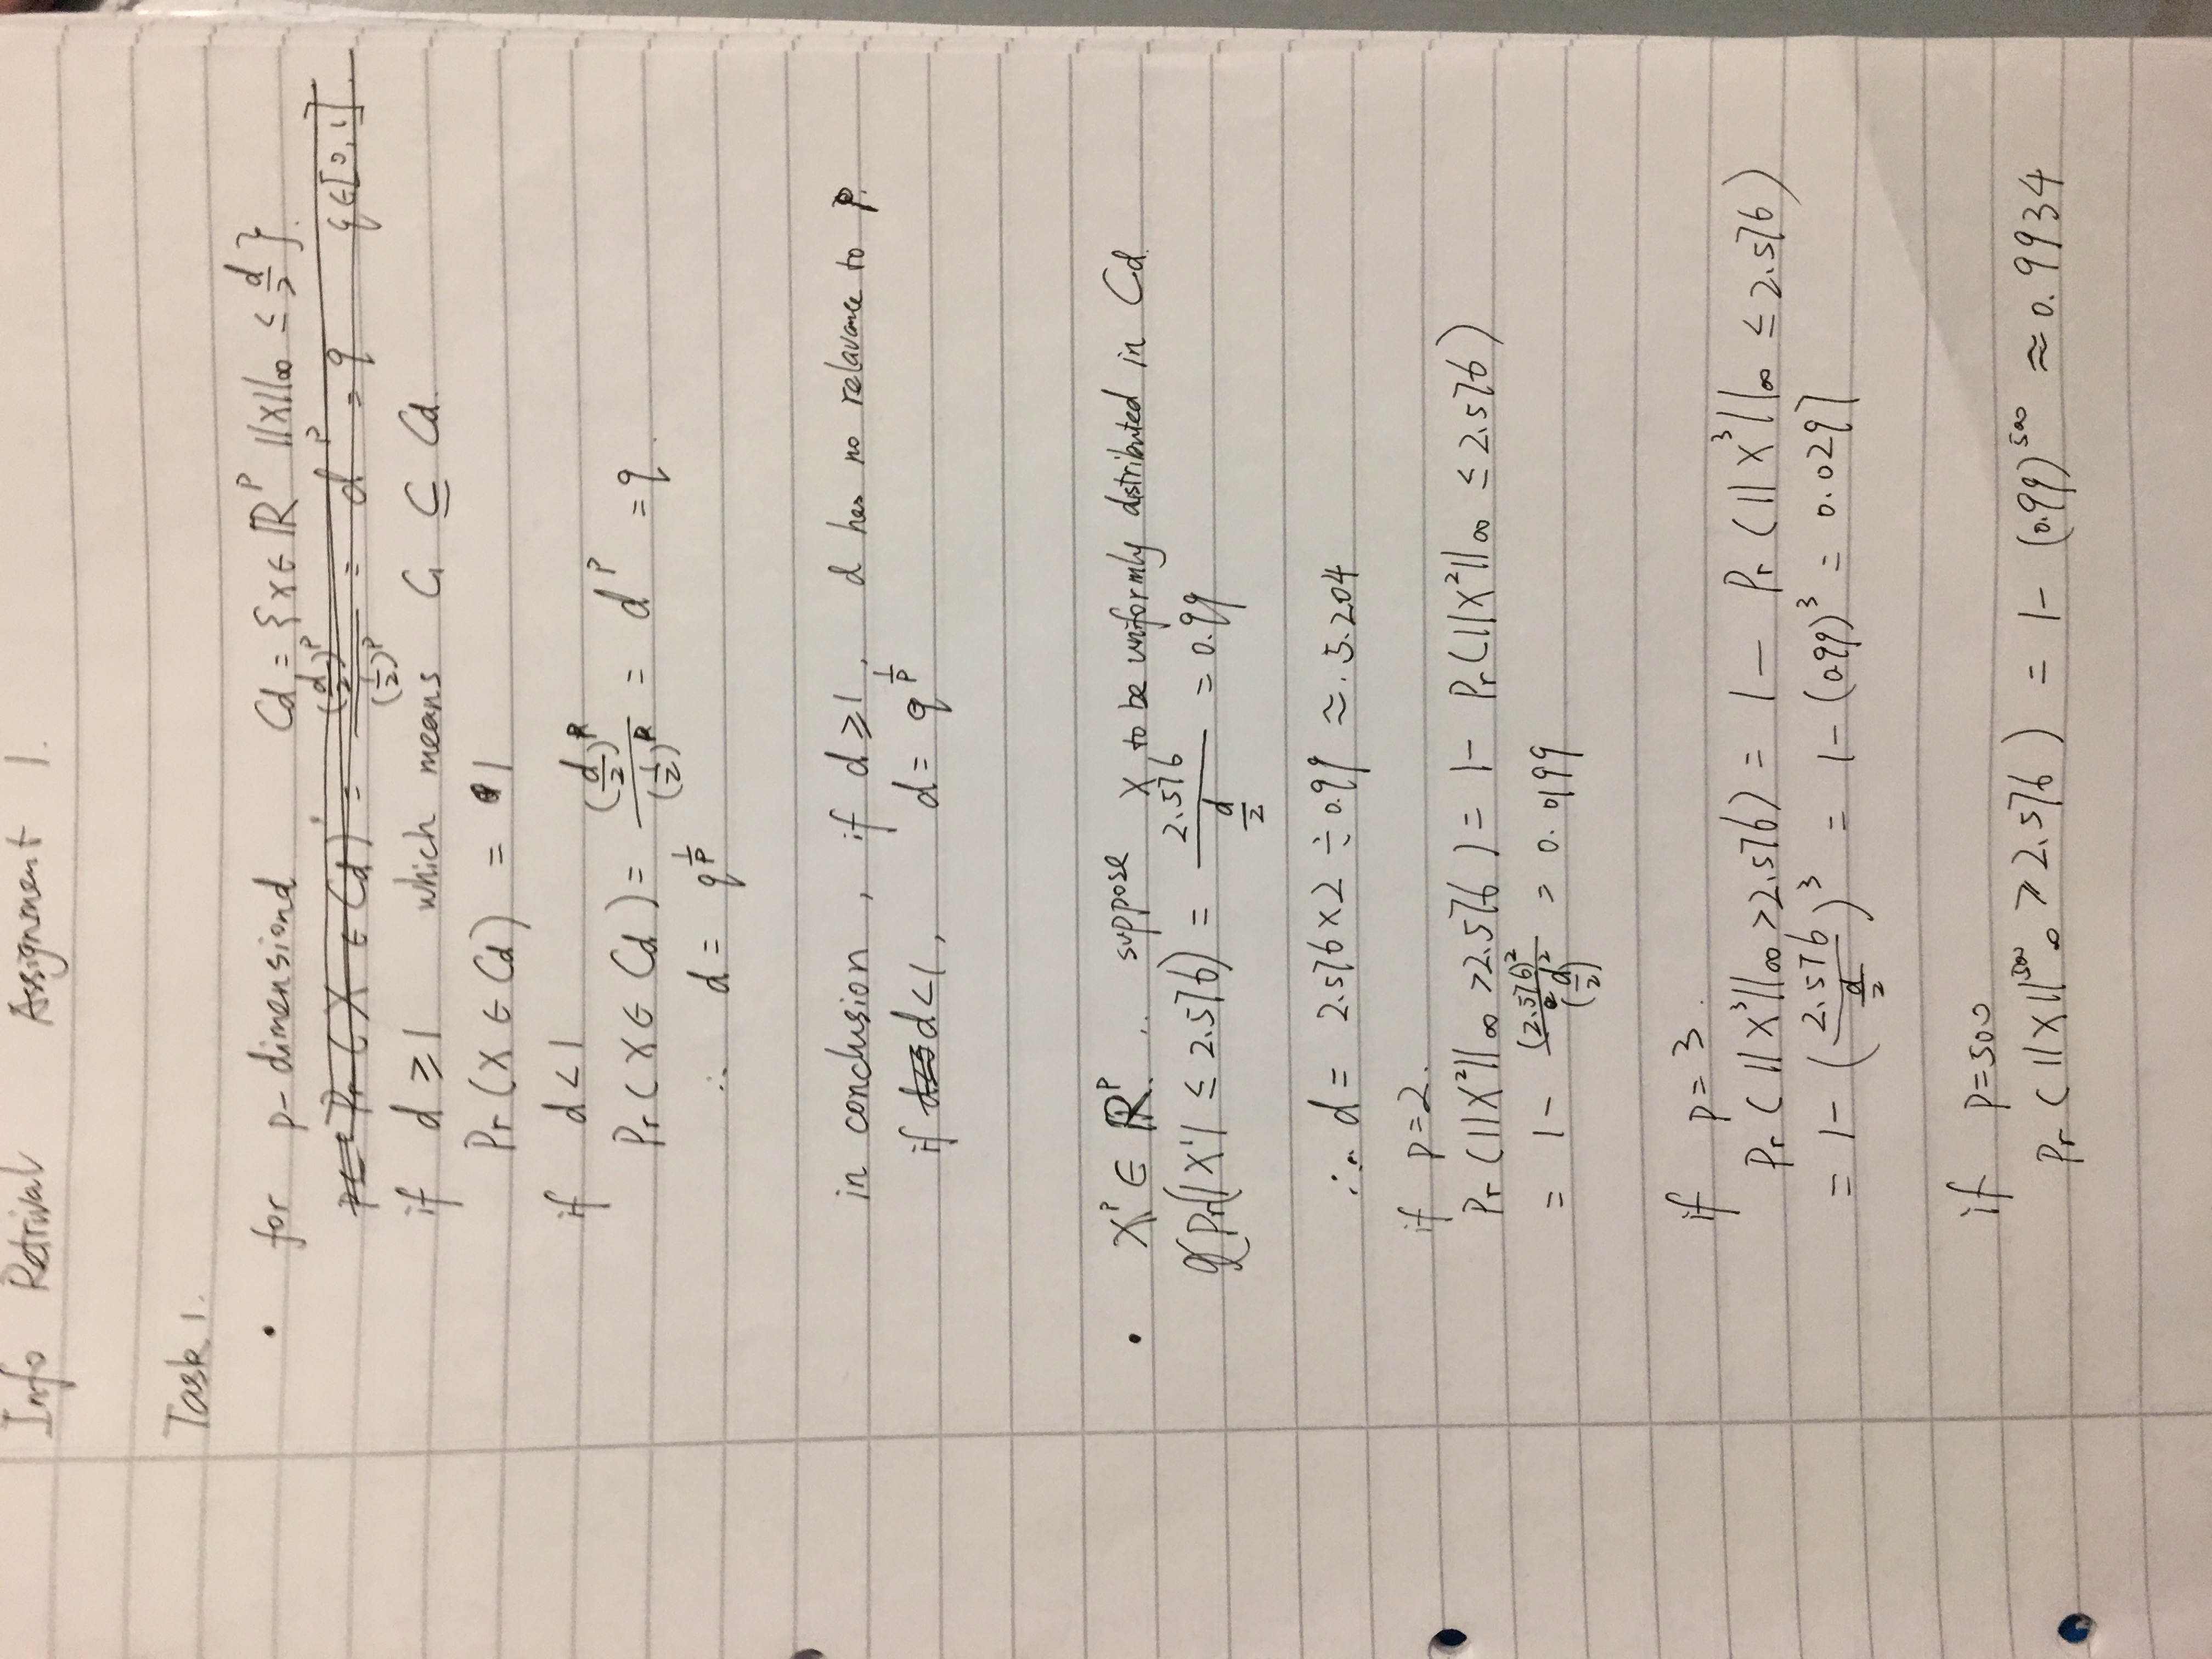 Info Retrival Assignment 1.
Task 1.
• for p-dimensiond Cd = {x ∈ ℝ^p ||x||∞ ≤ d/2}.
Pr (X ∈ Cd) = (d/2)^p / (1/2)^p = d^p = q q ∈ [0, 1].
if d ≥ 1 which means C1 ⊆ Cd.
Pr (X ∈ Cd) = 1
if d < 1
Pr (X ∈ Cd) = (d/2)^p / (1/2)^p = d^p = q.
∴ d = q^(1/p)
in conclusion, if d ≥ 1, d has no relavance to p.
if d < 1, d = q^(1/p)
• X^p ∈ ℝ^p. .. suppose X to be uniformly distributed in Cd.
Pr(|X^1| ≤ 2.576) = 2.576 / (d/2) = 0.99
∴ d = 2.576 × 2 ÷ 0.99 ≈ .5.204
if p = 2.
Pr (||X^2||∞ > 2.576) = 1 - Pr (||X^2||∞ ≤ 2.576)
= 1 - (2.576)^2 / (d/2)^2 = 0.0199
if p = 3.
Pr (||X^3||∞ > 2.576) = 1 - Pr (||X^3||∞ ≤ 2.576)
= 1 - (2.576 / (d/2))^3 = 1 - (0.99)^3 = 0.0297
if p = 500
Pr (||X||^500 ∞ > 2.576) = 1 - (0.99)^500 ≈ 0.9934